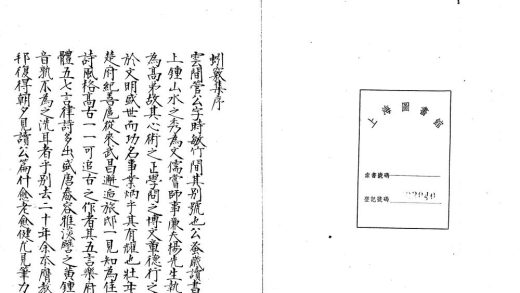 蚓竅集序
雲間管公字時敏竹間其別號也公蚤歲讀書
上鍾山水之秀為文儒嘗師事廉夫楊先生執
為高弟故其心術之正學問之博文章德行之
於文明盛世而功名事業炳乎其有耀也壯年
楚府紀善扈從來武昌邂逅旅邸一見知為佳
詩風格高古一一可追古之作者其五言樂府
體五七言律詩多出盛唐舂容雅淡譬之黃鍾
音孰不為之洗耳者乎別去二十年余忝膺教
邦復得朝夕見讀公篇什愈老愈健尤見筆力
上海圖書館
索書號碼
登記號碼